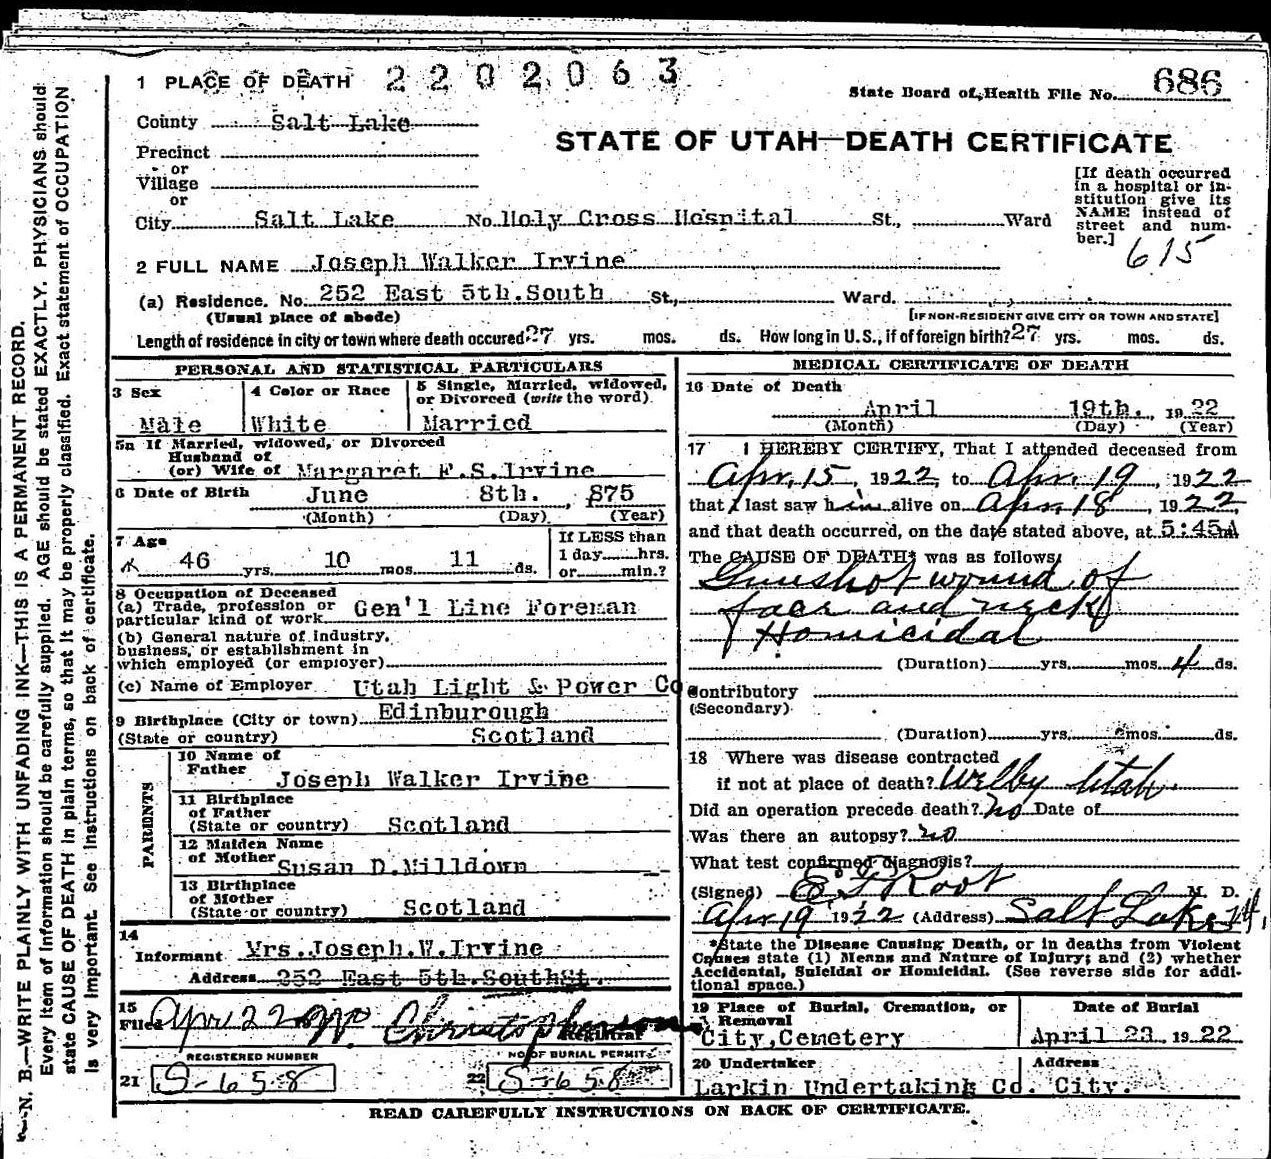 1 PLACE OF DEATH 2202063
State Board of Health File No. 686
County Salt Lake
STATE OF UTAH—DEATH CERTIFICATE
Precinct
or
Village
or
City Salt Lake No. Holy Cross Hospital St., Ward
[If death occurred in a hospital or institution give its NAME instead of street and number.]
615
2 FULL NAME Joseph Walker Irvine
(a) Residence. No. 252 East 5th.South St., Ward.
(Usual place of abode) [IF NON-RESIDENT GIVE CITY OR TOWN AND STATE]
Length of residence in city or town where death occured 27 yrs. mos. ds. How long in U.S., if of foreign birth? 27 yrs. mos. ds.
PERSONAL AND STATISTICAL PARTICULARS
3 Sex
Male
4 Color or Race
White
5 Single, Married, widowed, or Divorced (write the word)
Married
5a If Married, widowed, or Divorced
Husband of
(or) Wife of Margaret F.S.Irvine
6 Date of Birth June 8th. , 875
(Month) (Day) (Year)
7 Age
46 yrs. 10 mos. 11 ds.
If LESS than
1 day hrs.
or min.?
8 Occupation of Deceased
(a) Trade, profession or particular kind of work Gen'l Line Foreman
(b) General nature of industry, business, or establishment in which employed (or employer)
(c) Name of Employer Utah Light & Power Co
9 Birthplace (City or town) Edinburough
(State or country) Scotland
PARENTS
10 Name of Father Joseph Walker Irvine
11 Birthplace of Father (State or country) Scotland
12 Maiden Name of Mother Susan D.Milldown
13 Birthplace of Mother (State or country) Scotland
14
Informant Mrs.Joseph.W.Irvine
Address 252 East 5th.SouthSt.
15
Filed Apr 22 Christopherson
Registrar
REGISTERED NUMBER
21 S-658
NO OF BURIAL PERMIT
22 S-658
MEDICAL CERTIFICATE OF DEATH
16 Date of Death
April 19th. , 1922
(Month) (Day) (Year)
17 I HEREBY CERTIFY, That I attended deceased from
Apr. 15, 1922, to Apr. 19, 1922
that I last saw him alive on Apr. 18, 1922,
and that death occurred, on the date stated above, at 5:45A m
The CAUSE OF DEATH* was as follows:
Gunshot wound of
face and neck
Homicidal
(Duration) yrs. mos. 4 ds.
Contributory
(Secondary)
(Duration) yrs. mos. ds.
18 Where was disease contracted
if not at place of death? Welby Utah.
Did an operation precede death? no Date of
Was there an autopsy? no
What test confirmed diagnosis?
(Signed) Root M. D.
Apr 19 1922 (Address) Salt Lake
*State the Disease Causing Death, or in deaths from Violent
Causes state (1) Means and Nature of Injury; and (2) whether
Accidental, Suicidal or Homicidal. (See reverse side for addi-
tional space.)
19 Place of Burial, Cremation, or Removal
City,Cemetery
Date of Burial
April 23 1922
20 Undertaker
Larkin Undertaking Co.
Address
City.
READ CAREFULLY INSTRUCTIONS ON BACK OF CERTIFICATE.
N. B.—WRITE PLAINLY WITH UNFADING INK—THIS IS A PERMANENT RECORD.
Every item of information should be carefully supplied. AGE should be stated EXACTLY. PHYSICIANS should
state CAUSE OF DEATH in plain terms, so that it may be properly classified. Exact statement of OCCUPATION
is very important. See instructions on back of certificate.